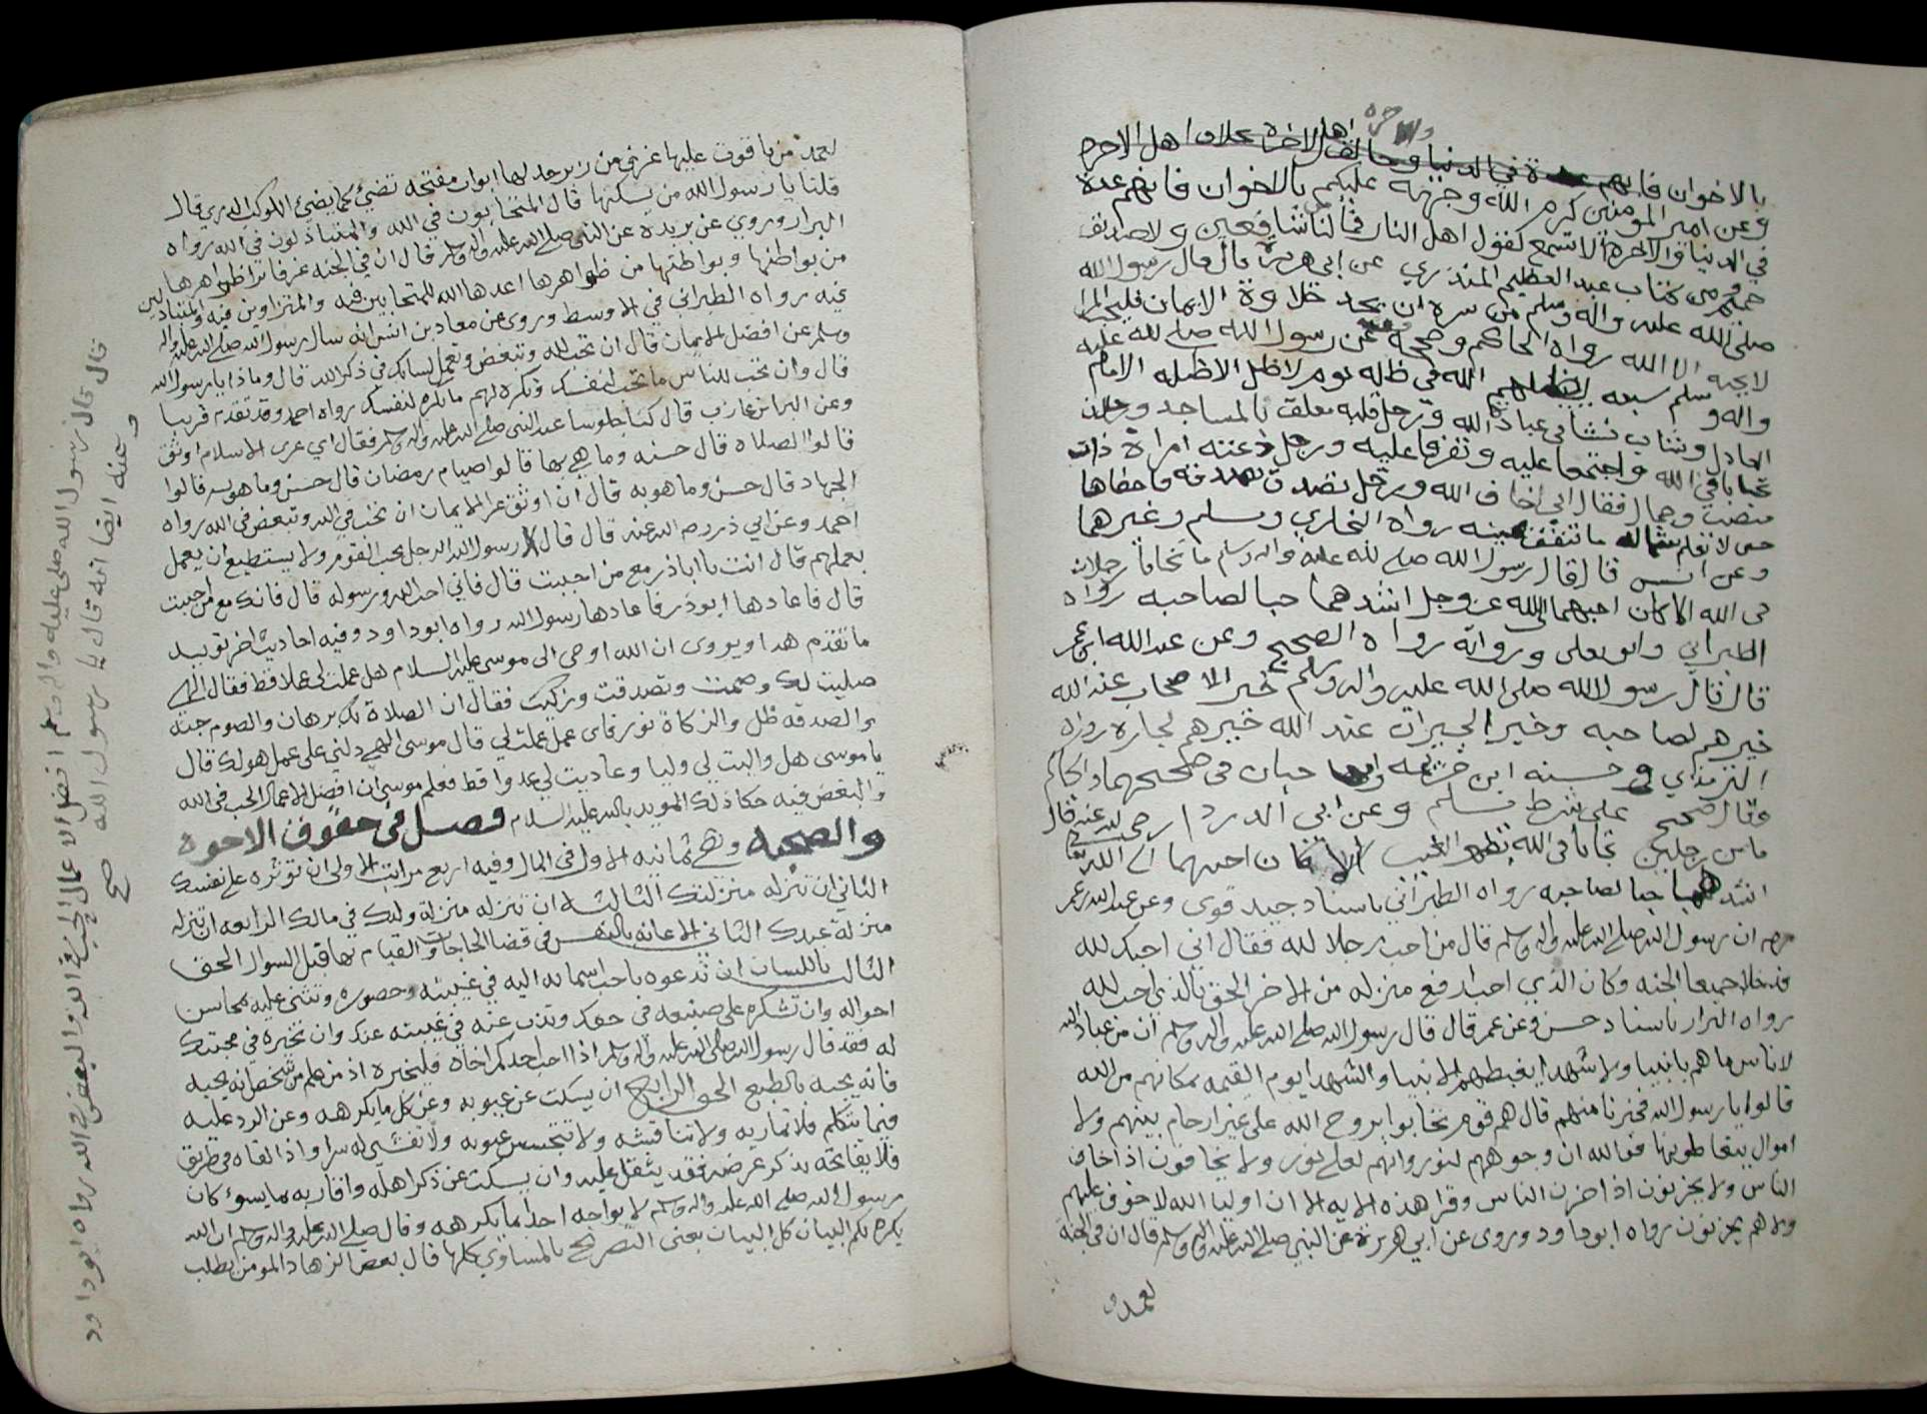 بالاخوان فانهم عدة في الدنيا اهل الاخرة اهل الاخره
وعن امير المؤمنين كرم الله وجهه عليكم بالاخوان فانهم عدة
في الدنيا والاخرة الا تسمع كقول اهل النار فما لنا شافعين ولا صديق
حميم ومن كتاب عبد العظيم المنذري عن ابي هريرة قال قال رسول الله
صلى الله عليه واله وسلم من سره ان يجد حلاوة الايمان فليحب المرا
لا يحبه الا الله رواه الحاكم وصححه وعنه عن رسول الله صلى الله عليه
واله وسلم سبعه يظلهم الله في ظله يوم لا ظل الا ظله الامام
العادل وشاب نشا في عبادة الله ورجل قلبه معلق بالمساجد ورجلان
تحابا في الله واجتمعا عليه وتفرقا عليه ورجل دعته امراة ذات
منصب وجمال فقال اني اخاف الله ورجل تصدق بصدقه فاخفاها
حتى لا تعلم شماله ما تنفق يمينه رواه البخاري ومسلم وغيرهما
وعن انس قال قال رسول الله صلى الله عليه واله وسلم ما تحابا رجلان
في الله الا كان احبهما الى الله عز وجل اشدهما حبا لصاحبه رواه
الطبراني وابو يعلى ورواته رواة الصحيح وعن عبد الله ابن عمر
قال قال رسول الله صلى الله عليه واله وسلم خير الاصحاب عند الله
خيرهم لصاحبه وخير الجيران عند الله خيرهم لجاره رواه
الترمذي وحسنه ابن خزيمه وابن حبان في صحيحهما والحاكم
وقال صحيح على شرط مسلم وعن ابي الدردا رضي الله عنه قال
ما من رجلين تحابا في الله بظهر الغيب الا كان احبهما الى الله
اشدهما حبا لصاحبه رواه الطبراني باسناد جيد قوي وعن عبد الله بن عمر
ان رسول الله صلى الله عليه واله وسلم قال من احب رجلا لله فقال اني احبك لله
فدخلا جميعا الجنه وكان الذي احب ارفع منزله من الاخر الحق بالذي احب لله
رواه البزار باسناد حسن وعن عمر قال قال رسول الله صلى الله عليه واله وسلم ان من عباد الله
لاناس ما هم بانبيا ولا شهدا يغبطهم الانبيا والشهدا يوم القيمه بمكانهم من الله
قالوا يا رسول الله فخبرنا من هم قال هم قوم تحابوا بروح الله على غير ارحام بينهم ولا
اموال يتعاطونها فوالله ان وجوههم لنور وانهم لعلى نور ولا يخافون اذا خاف
الناس ولا يحزنون اذا حزن الناس وقرا هذه الايه الا ان اوليا الله لا خوف عليهم
ولا هم يحزنون رواه ابو داود وروى عن ابي هريرة عن النبي صلى الله عليه واله وسلم قال ان في الجنة
لعمدا
لعمدا من ياقوت عليها غرف من زبرجد لها ابواب مفتحه تضيئ كما يضيئ الكوكب الدري قال
قلنا يا رسول الله من يسكنها قال المتحابون في الله والمتباذلون في الله رواه
البزار وروي عن بريده عن النبي صلى الله عليه واله وسلم قال ان في الجنه غرفا ترا ظواهرها
من بواطنها وبواطنها من ظواهرها اعدها الله للمتحابين فيه والمتزاورين فيه والمتباذلين
فيه رواه الطبراني في الاوسط وروى عن معاذ بن انس انه سال رسول الله صلى الله عليه واله
وسلم عن افضل الايمان قال ان تحب لله وتبغض وتعمل لسانك في ذكر الله قال وماذا يا رسول الله
قال وان تحب للناس ما تحب لنفسك وتكره لهم ما تكره لنفسك رواه احمد وقد تقدم قريبا
وعن البرا بن عازب قال كنا جلوسا عند النبي صلى الله عليه واله وسلم فقال اي عرى الاسلام اوثق
قالوا الصلاه قال حسنه وما هي بها قالوا صيام رمضان قال حسن وما هو به قالوا
الجهاد قال حسن وما هو به قال ان اوثق عرا الايمان ان تحب في الله وتبغض في الله رواه
احمد وعن ابي ذر رضي الله عنه قال قال يا رسول الله الرجل يحب القوم ولا يستطيع ان يعمل
بعملهم قال انت يا اباذر مع من احببت قال فاني احب الله ورسوله قال فانك مع من احببت
قال فاعادها ابوذر فاعادها رسول الله رواه ابو داود وفيه احاديث اخر تويد
ما تقدم هذا ويروى ان الله اوحى الى موسى عليه السلام هل عملت لي عملا قط فقال الهي
صليت لك وصمت وتصدقت وزكيت فقال ان الصلاة لك برهان والصوم جنه
والصدقه ظل والزكاة نور فاي عمل عملت لي قال موسى الهي دلني على عمل هو لك قال
يا موسى هل واليت لي وليا وعاديت لي عدوا قط فعلم موسى ان افضل الاعمال الحب في الله
والبغض فيه حكا ذلك المويد بالله عليه السلام فصل في حقوق الاخوه
والصحبه وهي ثمانيه الاول في المال وفيه اربع مراتب الاولى ان توثره على نفسك
الثاني ان تنزله منزلتك الثالثه ان تنزله منزلة ولدك في مالك الرابعه ان تنزله
منزلة عبدك الثاني الاعانه بالنفس في قضا الحاجات والقيام بها قبل السوال الحق
الثالث باللسان ان تدعوه باحب اسمائه اليه في غيبته وحضوره وتثنى عليه بمحاسن
احواله وان تشكره على صنيعه في حقك وتذب عنه في غيبته عنك وان تخبره في محبتك
له فقد قال رسول الله صلى الله عليه واله وسلم اذا احب احدكم اخاه فليخبره اذ من علم من شخص انه يحبه
فانه يحبه بالطبع الحق الرابع ان يسكت عن عيوبه وعن كل ما يكرهه وعن الرد عليه
فيما يتكلم فلا تماريه ولا تناقشه ولا تتجسس عيوبه ولا تفشي له سرا واذا لقاه في طريق
فلا يفاتحه بذكر غرضه فقد يثقل عليه وان يسكت عن ذكر اهله واقاربه بما يسوء كان
رسول الله صلى الله عليه واله وسلم لا يواجه احدا بما يكرهه وقال صلى الله عليه واله وسلم ان الله
يكره لكم البيان كل البيان يعنى التصريح بالمساوي كلها قال بعض الزهاد المومن يطلب
وعنه ايضا انه قال يا رسول الله صح
قال قال رسول الله صلى عليه واله وسلم افضل الاعمال الحب في الله والبغض في الله رواه ابو داود